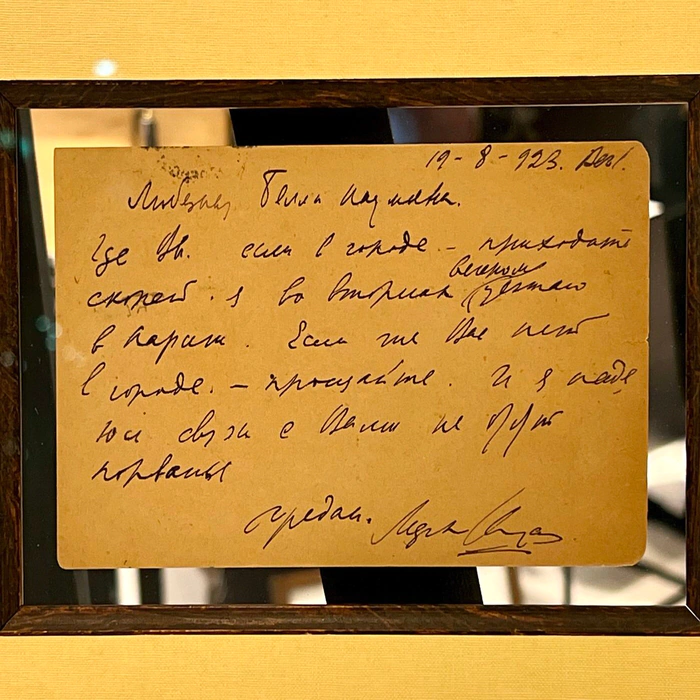 19 - 8 - 923. Berl.
Любезная Белла Наумовна.
Где Вы. если в городе - приходите
скорей. я во вторник вечером уезжаю
в Париж. Если же Вас нет
в городе. - прощайте. И я наде
юсь связи с Вами не будут
порваны
предан.